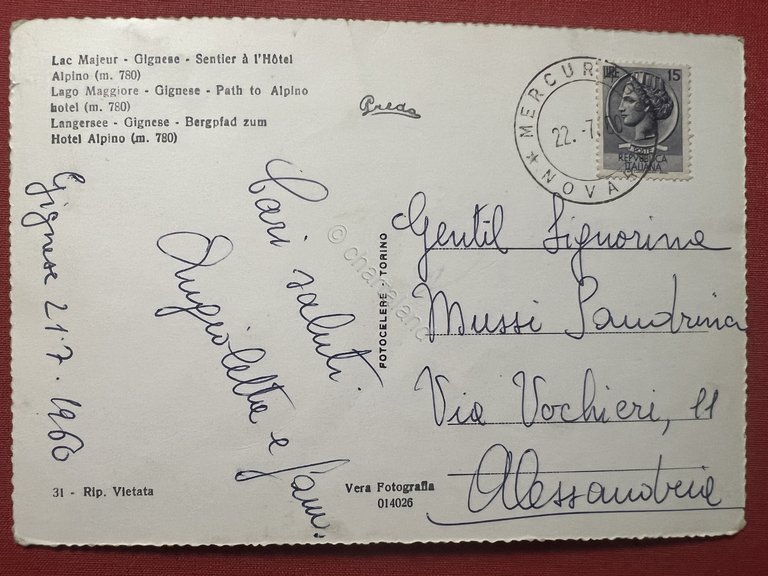 Lac Majeur - Gignese - Sentier à l'Hôtel
Alpino (m. 780)
Lago Maggiore - Gignese - Path to Alpino
hotel (m. 780)
Langersee - Gignese - Bergpfad zum
Hotel Alpino (m. 780)
Preda
LIRE 15
POSTE
REPVBBLICA
ITALIANA
22. -7.
NOVARA
Gignese 21.7.1960
Cari saluti
Angioletta e fam.
FOTOCELERE TORINO
© charaland
Gentil Signorina
Mussi Sandrina
Via Vochieri, 11
Alessandria
31 - Rip. Vietata
Vera Fotografia
014026